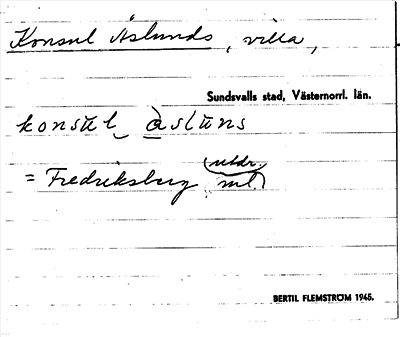 Konsul Åslunds, villa,
Sundsvalls stad, Västernorrl. län.
konsul åsluns
= Fredriksberg
BERTIL FLEMSTRÖM 1945.